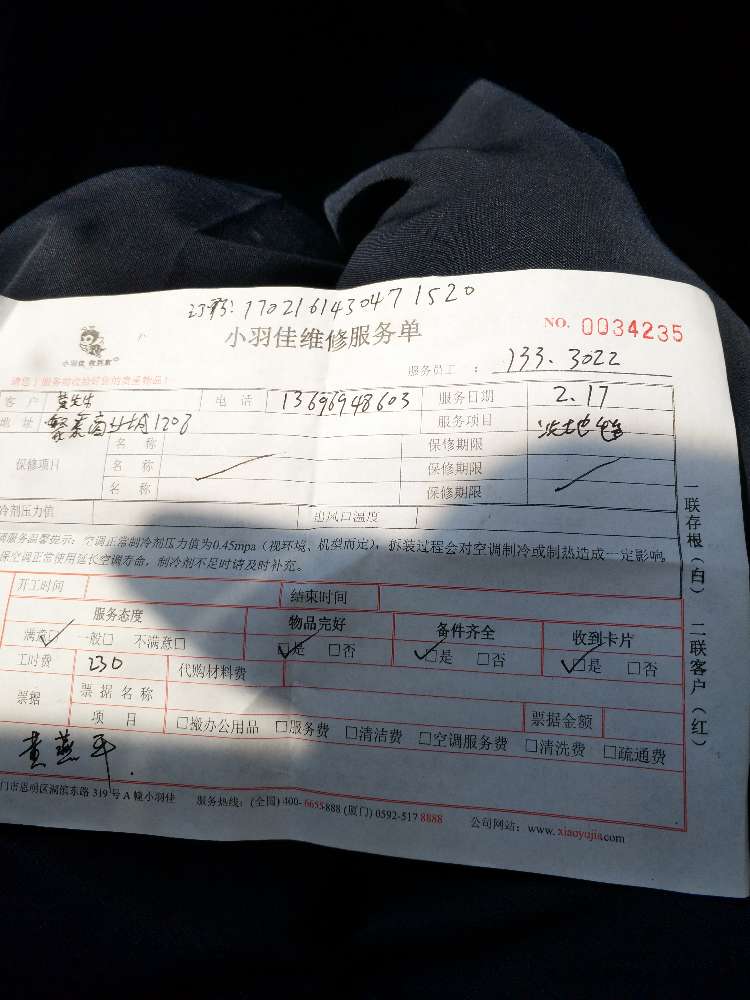 订单:1702161430471520
小羽佳维修服务单
NO. 0034235
小羽佳
服务员工 : 133. 3022
客户 黄先生 电话 13696948603 服务日期 2.17
地址 1208 服务项目
保修项目 名称 保修期限
名称 保修期限
名称 保修期限
冷剂压力值 出风口温度
调服务温馨提示:空调正常制冷剂压力值为0.45mpa(视环境、机型而定),拆装过程会对空调制冷或制热造成一定影响,
保空调正常使用延长空调寿命,制冷剂不足时请及时补充。
开工时间 结束时间
服务态度 物品完好 备件齐全 收到卡片
满意□ 一般□ 不满意□ □是 □否 □是 □否 □是 □否
工时费 230 代购材料费
票据 票据名称 票据金额
项目 □搬办公用品 □服务费 □清洁费 □空调服务费 □清洗费 □疏通费
黄燕平
门市思明区湖滨东路 319 号 A 幢小羽佳 服务热线:(全国) 400-6655-888 (厦门) 0592-517 8888 公司网站:www.xiaoyujia.com
一联存根(白) 二联客户(红)